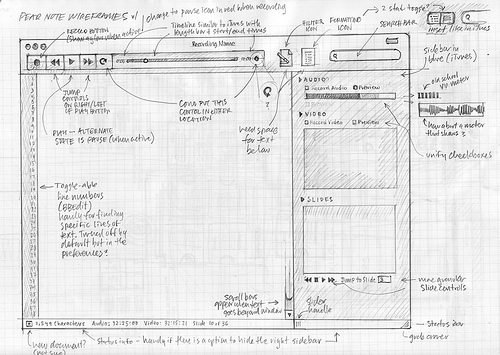 PEAR NOTE WIREFRAMES v1
change to pause icon in red when recording
RECORD BUTTON
(show a glow when active)
Timeline similar to iTunes with
length bar + start/end times
Recording Name
HUNTER
ICON
FORMATTING
ICON
2 state toggle?
SEARCH BAR
inset (like in iTunes)
sidebar in
blue (iTunes)
JUMP
CONTROLS
ON RIGHT/LEFT
OF PLAY BUTTON
COULD PUT THIS
CONTROL IN EITHER
LOCATION
PLAY - ALTERNATE
STATE IS PAUSE (when active)
need space
for text
below
?
AUDIO
Record Audio Preview
VIDEO
Record Video Preview
SLIDES
Jump to Slide
old school
VU meter
how about a meter
that shows ?
unify checkboxes
Toggle-able
line numbers
(BBEdit)
handy for finding
specific lines of
text. Turned off by
default but in the
preferences?
scroll bars
appear when text
goes beyond window
slider
handle
more granular
slide controls
2,549 Characters Audio: 32:25:09 Video: 32:15:21 Slide 10 of 36
status bar
grab corner
new document?
status info - handy if there is option to hide the right sidebar